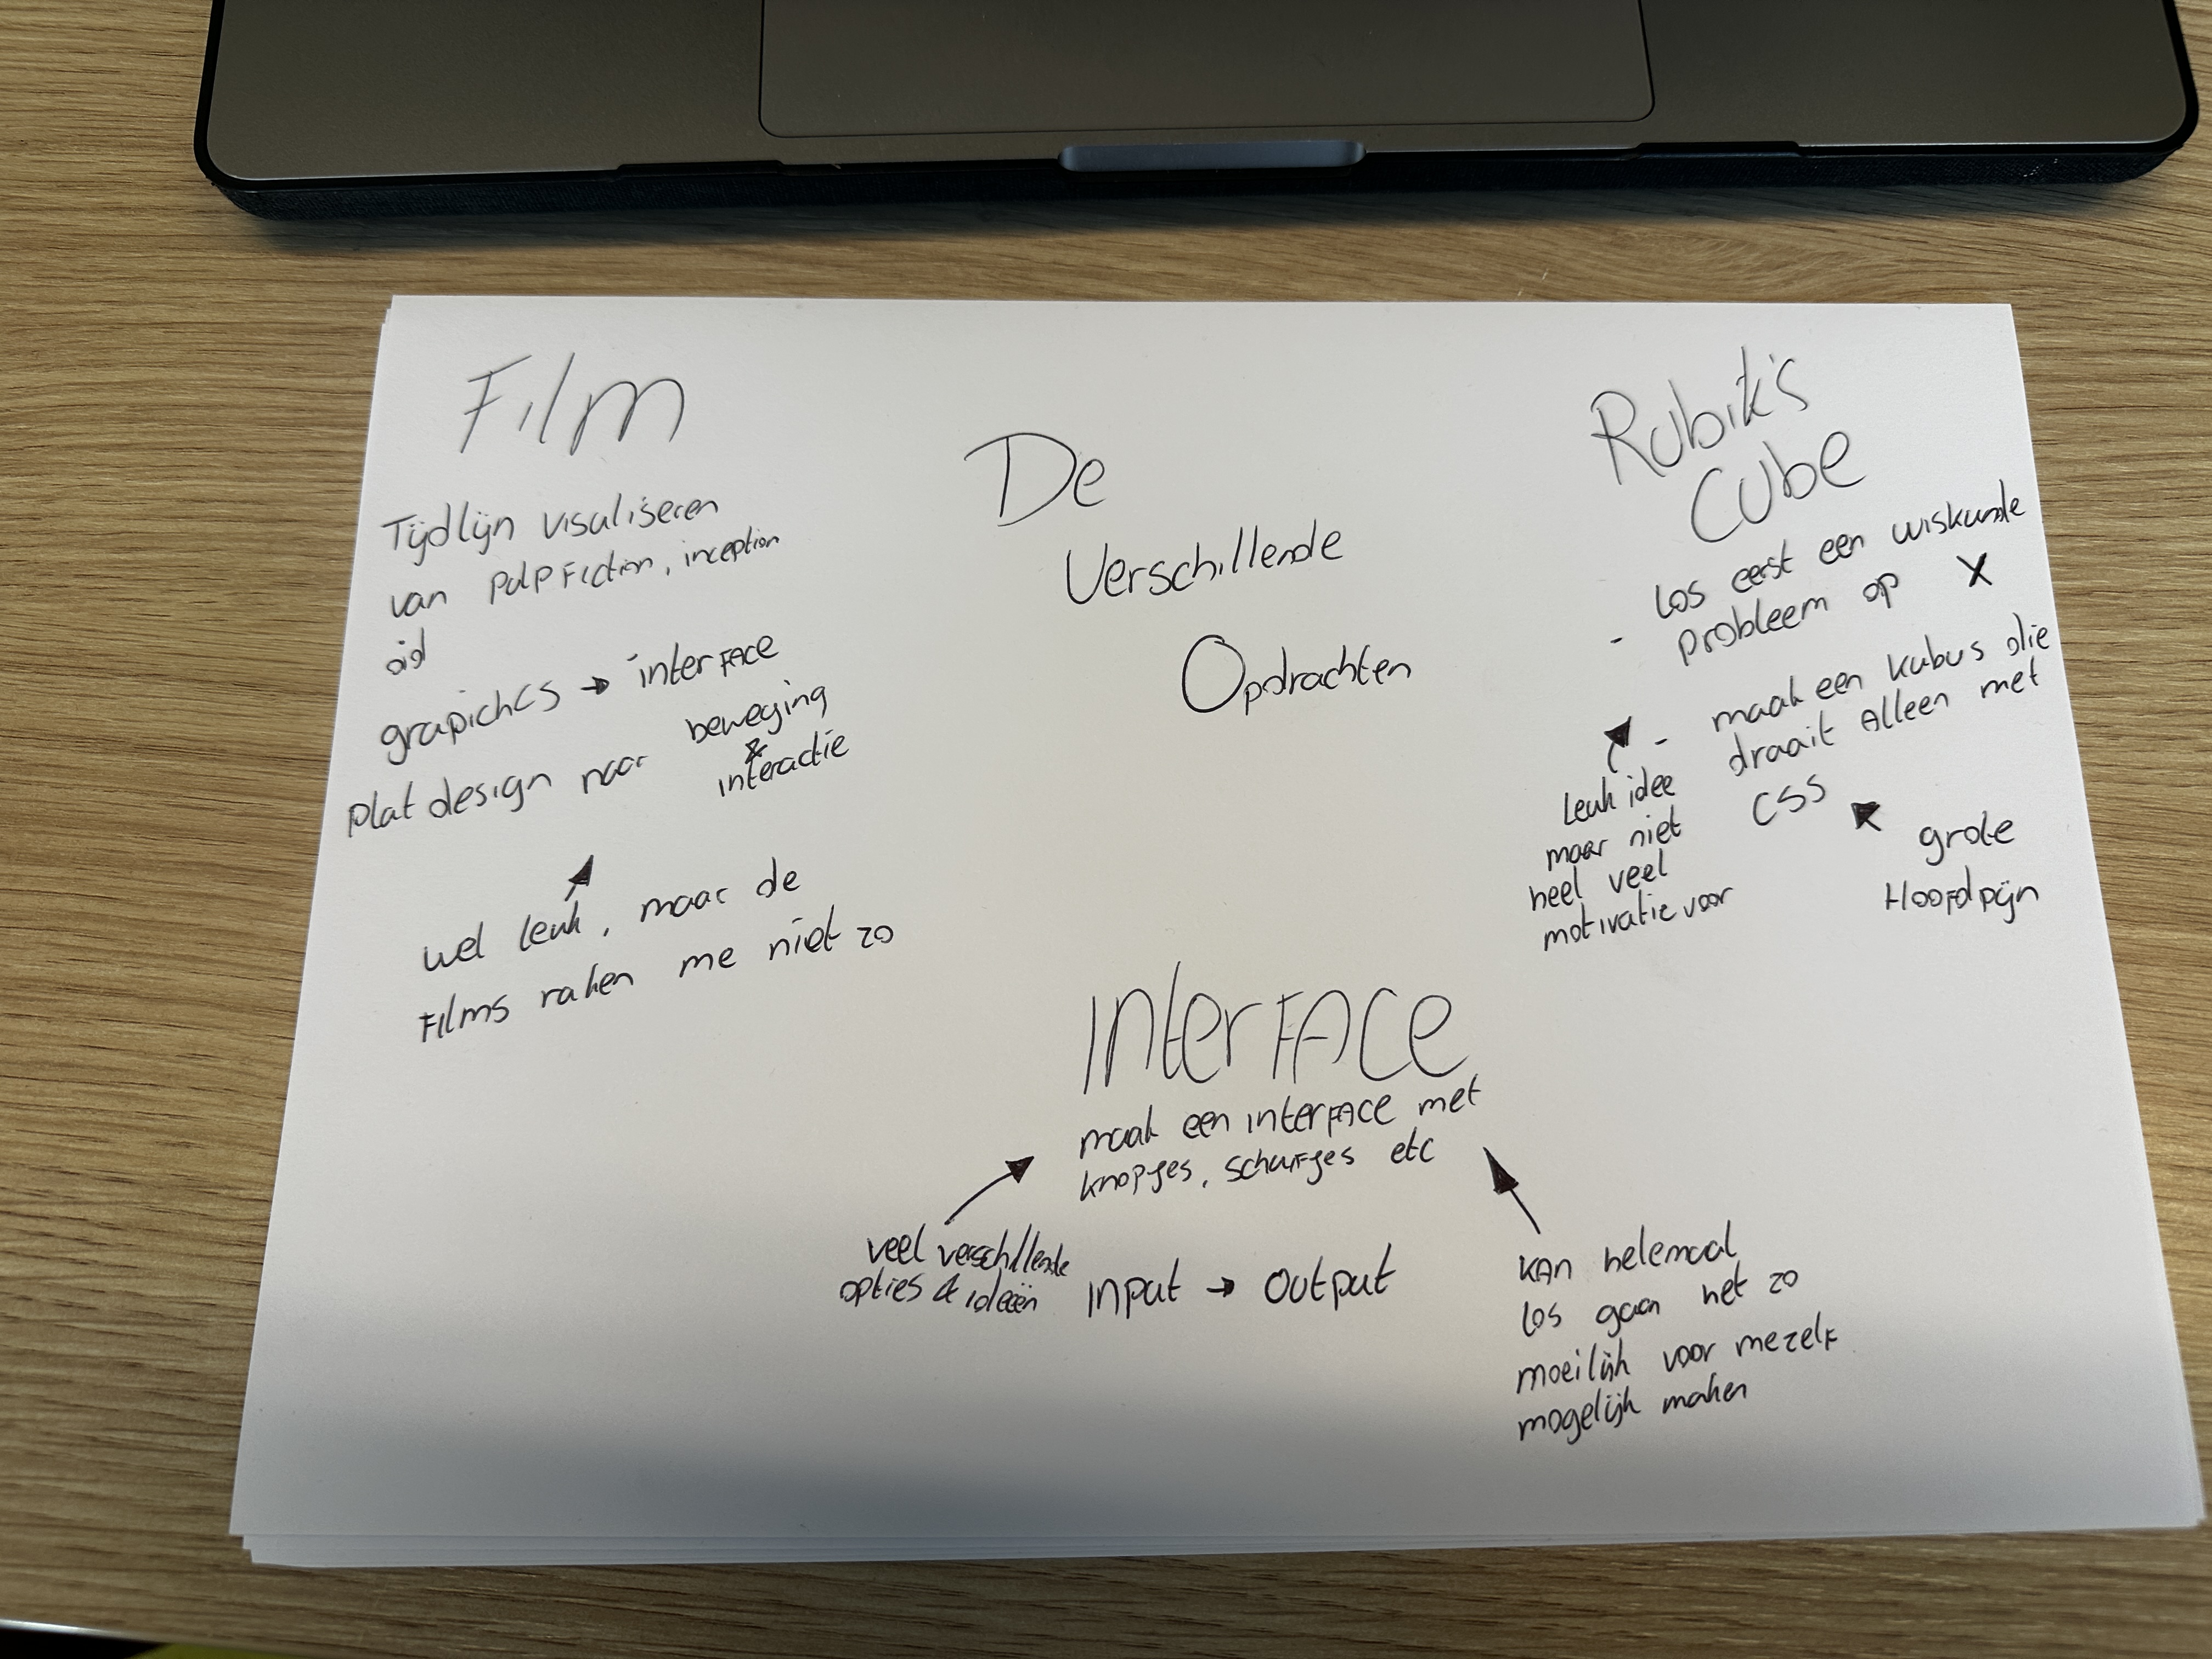 Film
Tijdlijn visualiseren
van Pulp Fiction, inception
oid
grapichcs → interface
Plat design naar beweging
&
interactie
wel leuk, maar de
Films raken me niet zo
De
Verschillende
Opdrachten
Rubik's
Cube
- Los eerst een wiskunde
probleem op X
- maak een kubus die
draait Alleen met
CSS
Leuk idee
maar niet
heel veel
motivatie voor
grote
Hoofdpijn
InterFACE
maak een interFACE met
knopjes, schuifjes etc
veel verschillende
opties & ideeën
Input → Output
KAn helemaal
los gaan het zo
moeilijk voor mezelf
mogelijk maken